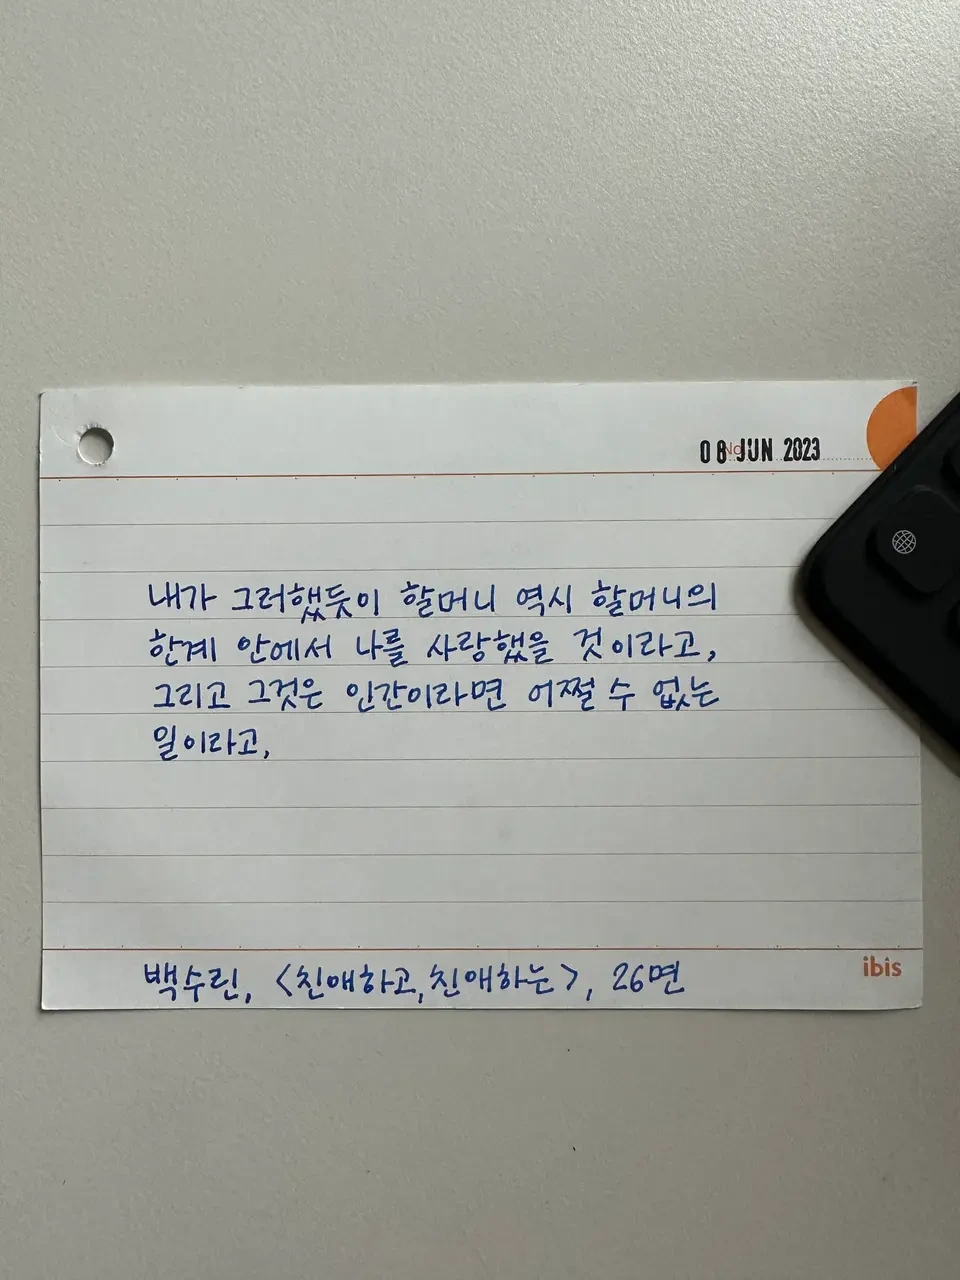 No
08 JUN 2023
내가 그러했듯이 할머니 역시 할머니의
한계 안에서 나를 사랑했을 것이라고,
그리고 그것은 인간이라면 어쩔 수 없는
일이라고,
ibis
백수린, <친애하고, 친애하는>, 26면